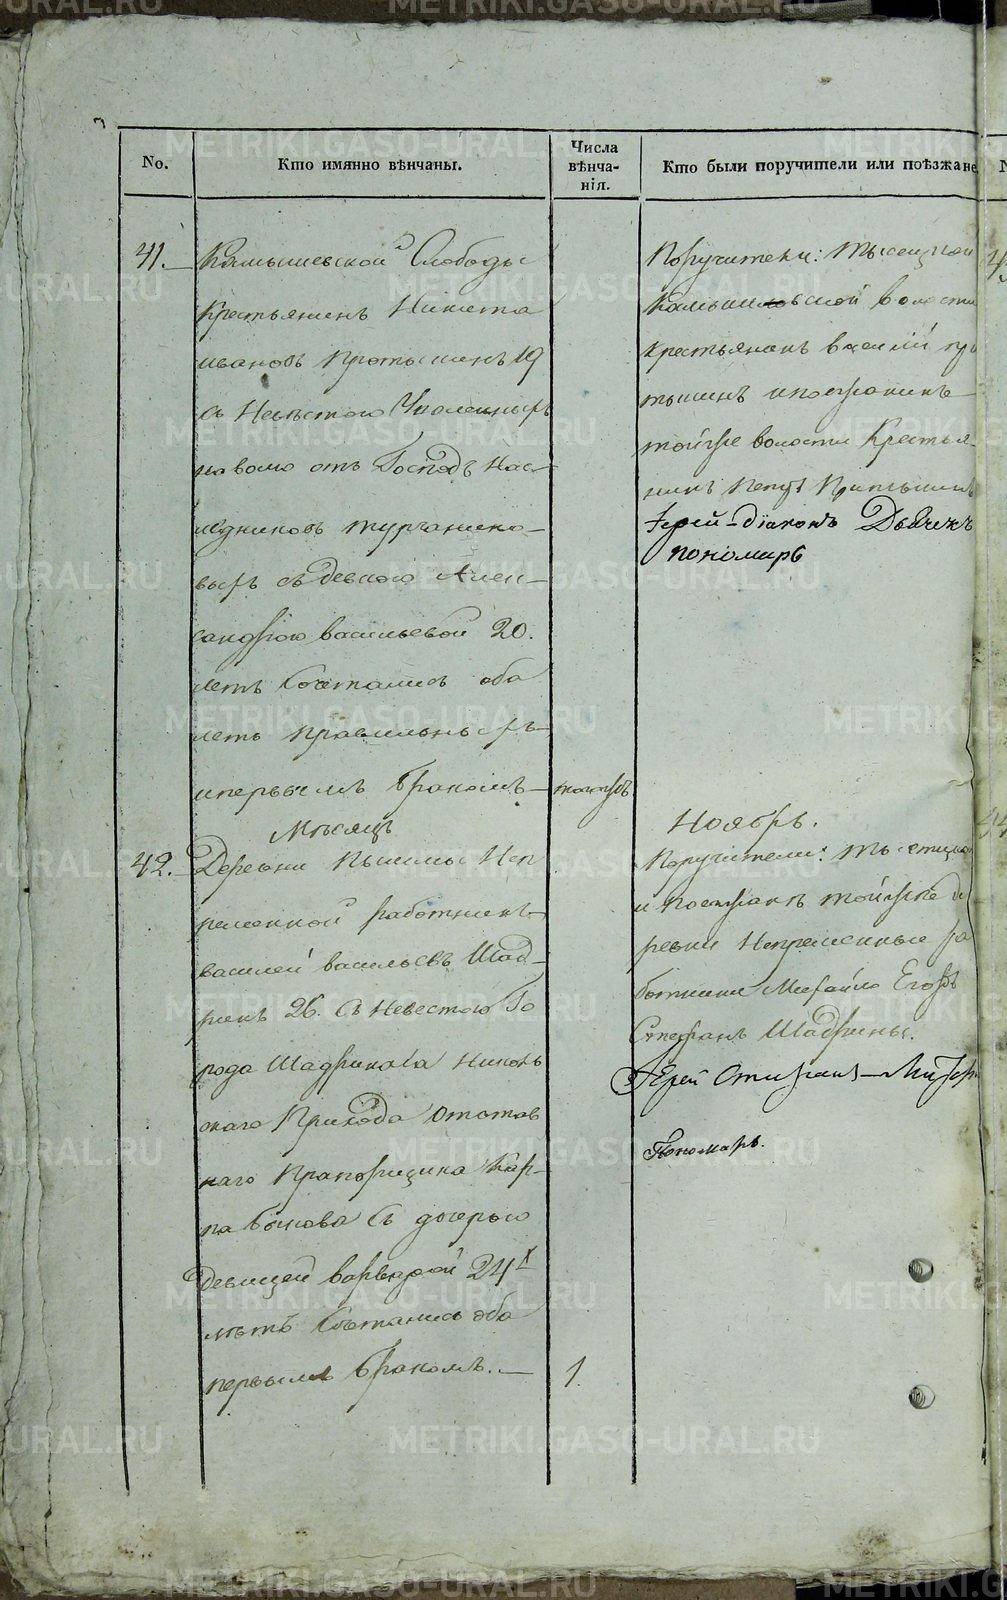 No.
Кто имянно вѣнчаны.
Числа
вѣнча-
нія.
Кто были поручители или поѣзжане
41.
Камышевской Слободы
Крестьянинъ Никита
ивановъ Протасинъ 19
съ Невѣстою
на волю отъ Господъ Нас-
ледниковъ Турчанино-
выхъ съ девкою Алек-
сандрою васильевой 20.
летъ Сочетались оба
летъ правильныхъ
и первымъ бракомъ
тогожъ
Поручители: Тысецкой
Камышевской волости
Крестьянинъ василий
и поезжанинъ
тойже волости Крестья-
нинъ Петръ
Іерей-діаконъ Дьячекъ
пономарь
Мѣсяцъ
Ноябрь.
42.
Деревни Пышмы Неп
ременной работникъ
василей васильевъ Шад-
ринъ 26. Съ Невестою Го
рода Шадринска Николь
скаго Прихода Отстав
наго Прапорщика Кар-
па Быкова Съ дочерью
девицей варварой 24х
летъ Сочетались оба
первымъ бракомъ.
1.
Поручители: Тысецкой
и поезжанъ тойже де
ревни Непременные ра
ботники Михайло Егоръ
Степанъ Шадрины.
Іерей
Пономарь.
METRIKI.GASO-URAL.RU